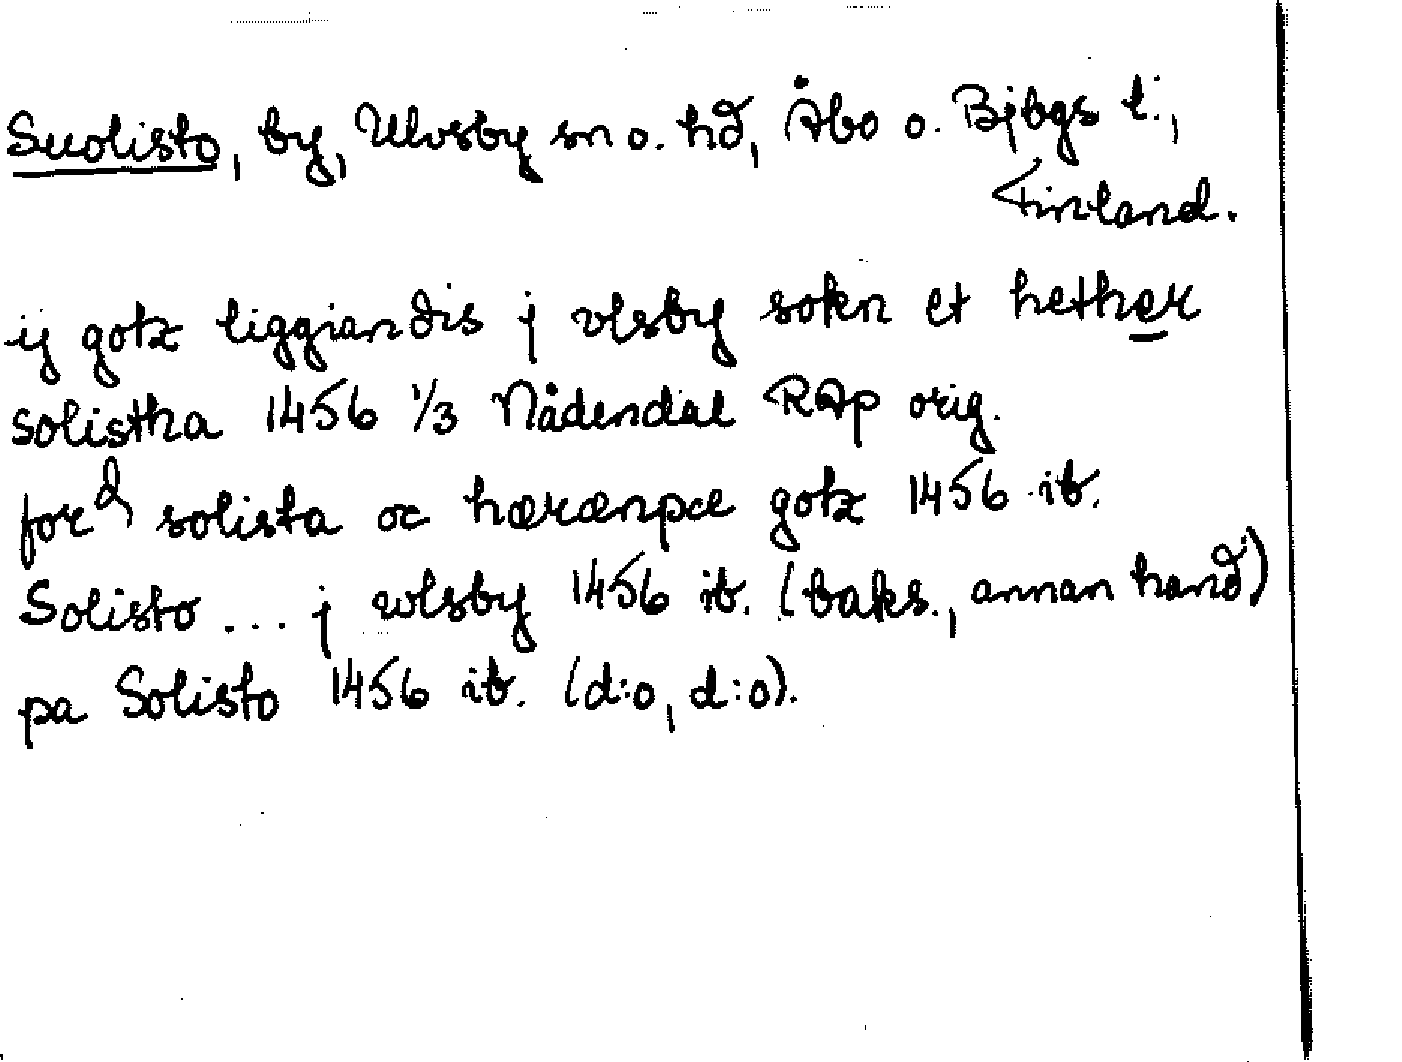 Suolisto, by, Ulvsby sn o. hd, Åbo o. Bjbgs l.,
Finland.
ij gotz liggiandis j vlsby sokn et hether
solistha 1456 1/3 Nådendal RAp orig.
for solista oc hærænpæ gotz 1456 ib.
Solisto ... j wlsby 1456 ib. (baks., annan hand)
pa Solisto 1456 ib. (d:o, d:o).